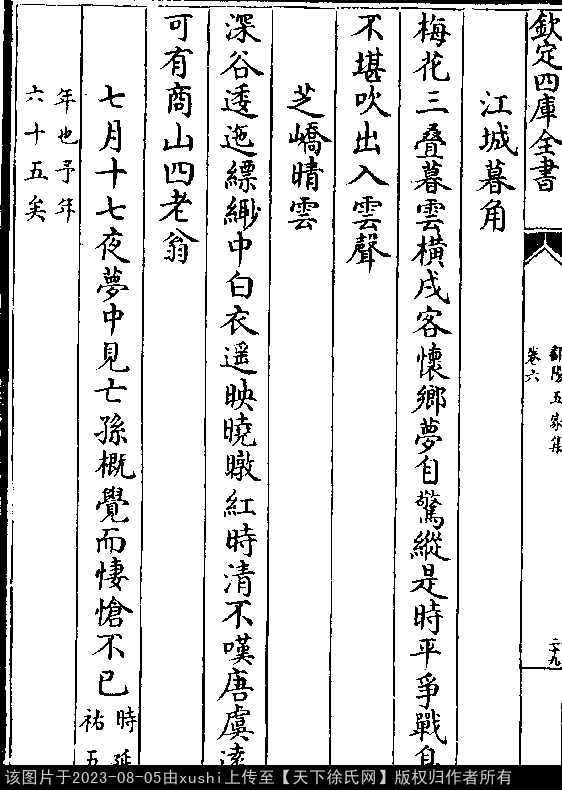 欽定四庫全書
卷六
鄱陽五家集
二十九
江城暮角
梅花三疊暮雲橫戍客懷鄉夢自驚縱是時平爭戰息
不堪吹出入雲聲
芝嶠晴雲
深谷逶迤縹緲中白衣遥映曉暾紅時清不嘆唐虞遠
可有商山四老翁
七月十七夜夢中見亡孫概覺而悽愴不已時延
祐五
年也予年
六十五矣
该图片于2023-08-05由xushi上传至【天下徐氏网】版权归作者所有